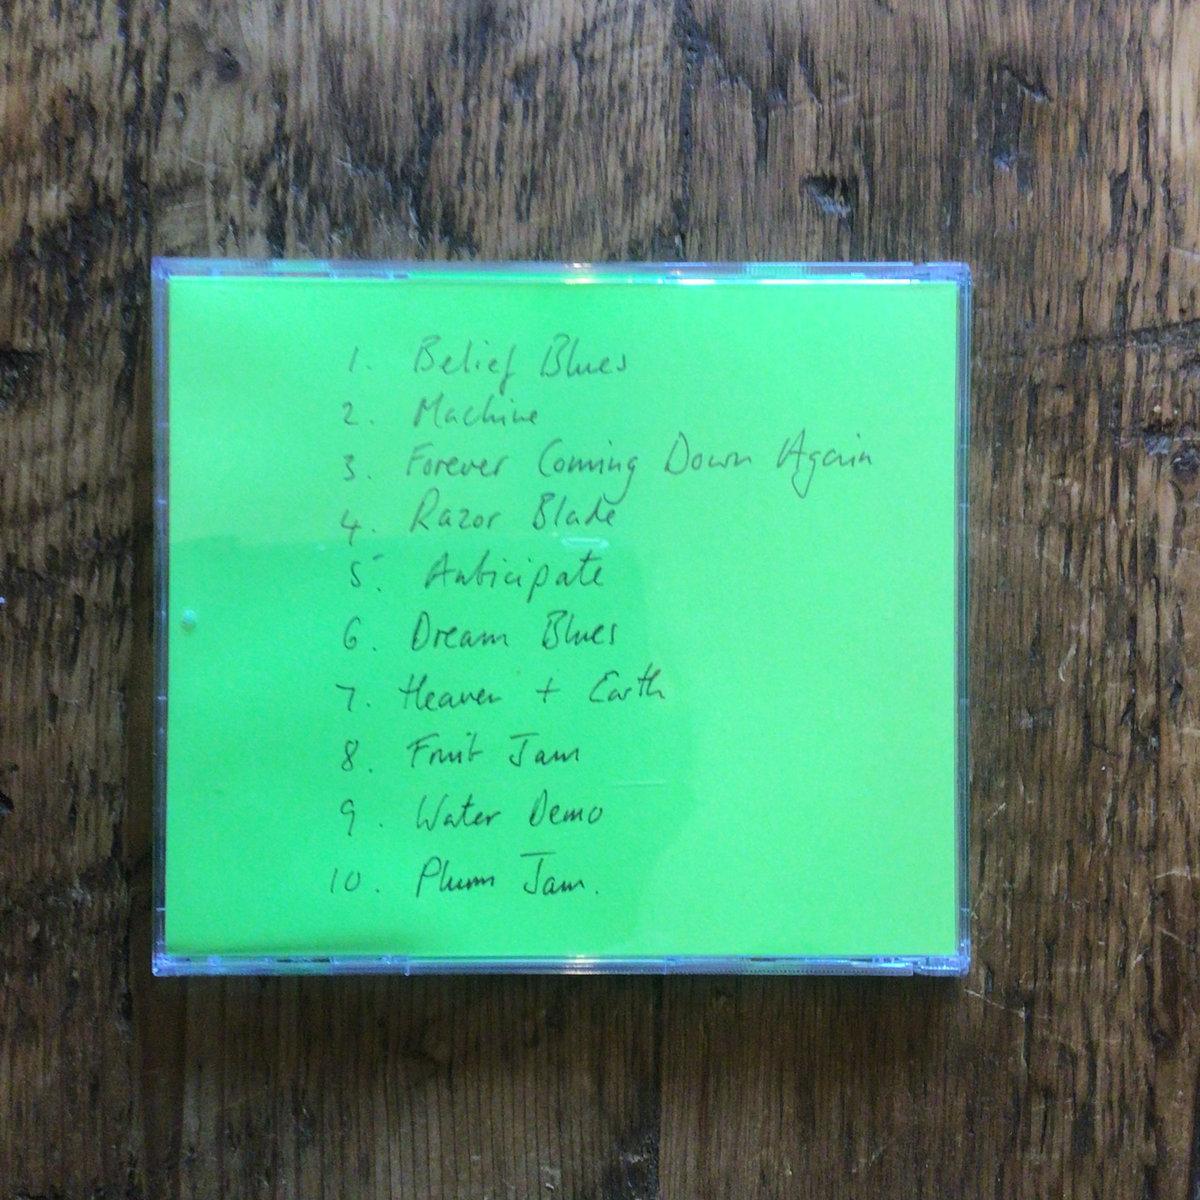 1. Belief Blues
2. Machine
3. Forever Coming Down Again
4. Razor Blade
5. Anticipate
6. Dream Blues
7. Heaven + Earth
8. Fruit Jam
9. Water Demo
10. Plum Jam.